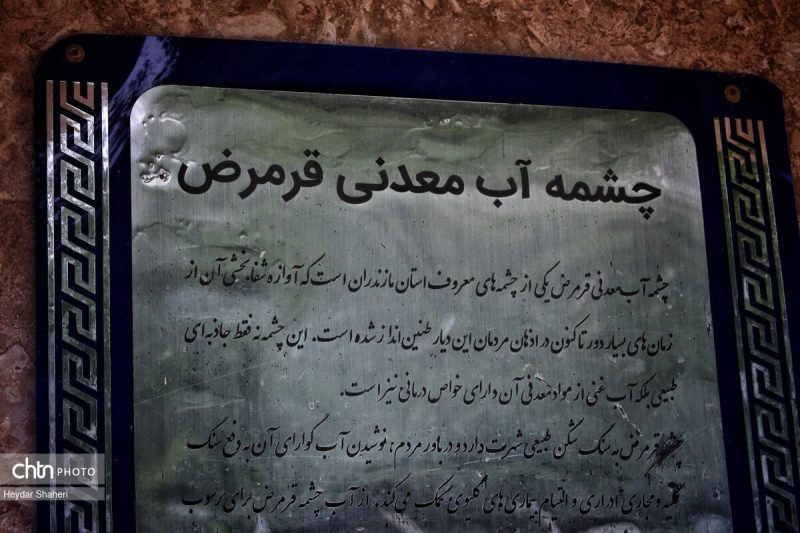 چشمه آب معدنی قرمرض
چشمه آب معدنی قرمرض یکی از چشمه های معروف استان مازندران است که آوازه شفابخشی آن از
زمان های بسیار دور تا کنون در اذهان مردمان این دیار طنین انداز شده است. این چشمه نه فقط جاذبه ای
طبیعی بلکه آب غنی از مواد معدنی آن دارای خواص درمانی نیز است.
چشمه قرمرض به سنگ شکن طبیعی شهرت دارد و در باور مردم، نوشیدن آب گوارای آن به دفع سنگ
کلیه و مجاری ادراری و التیام بیماری های کلیوی کمک می کند. از آب چشمه قرمرض برای رسوب
chtn PHOTO
Heydar Shaheri